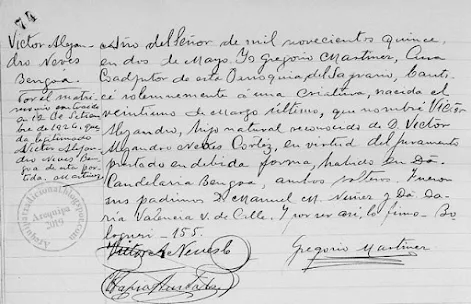 74
Victor Alejan-
dro Neves
Bengoa.
Por el matri-
monio contraido
en 12 de Setiem-
bre de 1926, que-
da legitimado
Victor Alejan-
dro Neves Ben-
goa de esta par-
tida. Martinez
Año del Señor de mil novecientos quince,
en dos de Mayo Yo Gregorio Martinez, Cura
Coadjutor de esta Parroquia del Sagrario, bauti-
cé solemnemente á una criatura, nacida el
veintiuno de Marzo último, que nombré Victor
Alejandro, hijo natural reconocido de D. Victor
Alejandro Neves Cortez, en virtud del juramento
prestado en debida forma, habido en Da.
Candelaria Bengoa, ambos solteros. Fueron
sus padrinos D. Manuel M. Nuñez y Da. Da-
ria Valencia v. de Calle. Y por ser así, lo firmo - Bo-
lognesi - 155.
Victor A Neves
Gregorio Martinez
Arequipa
2019